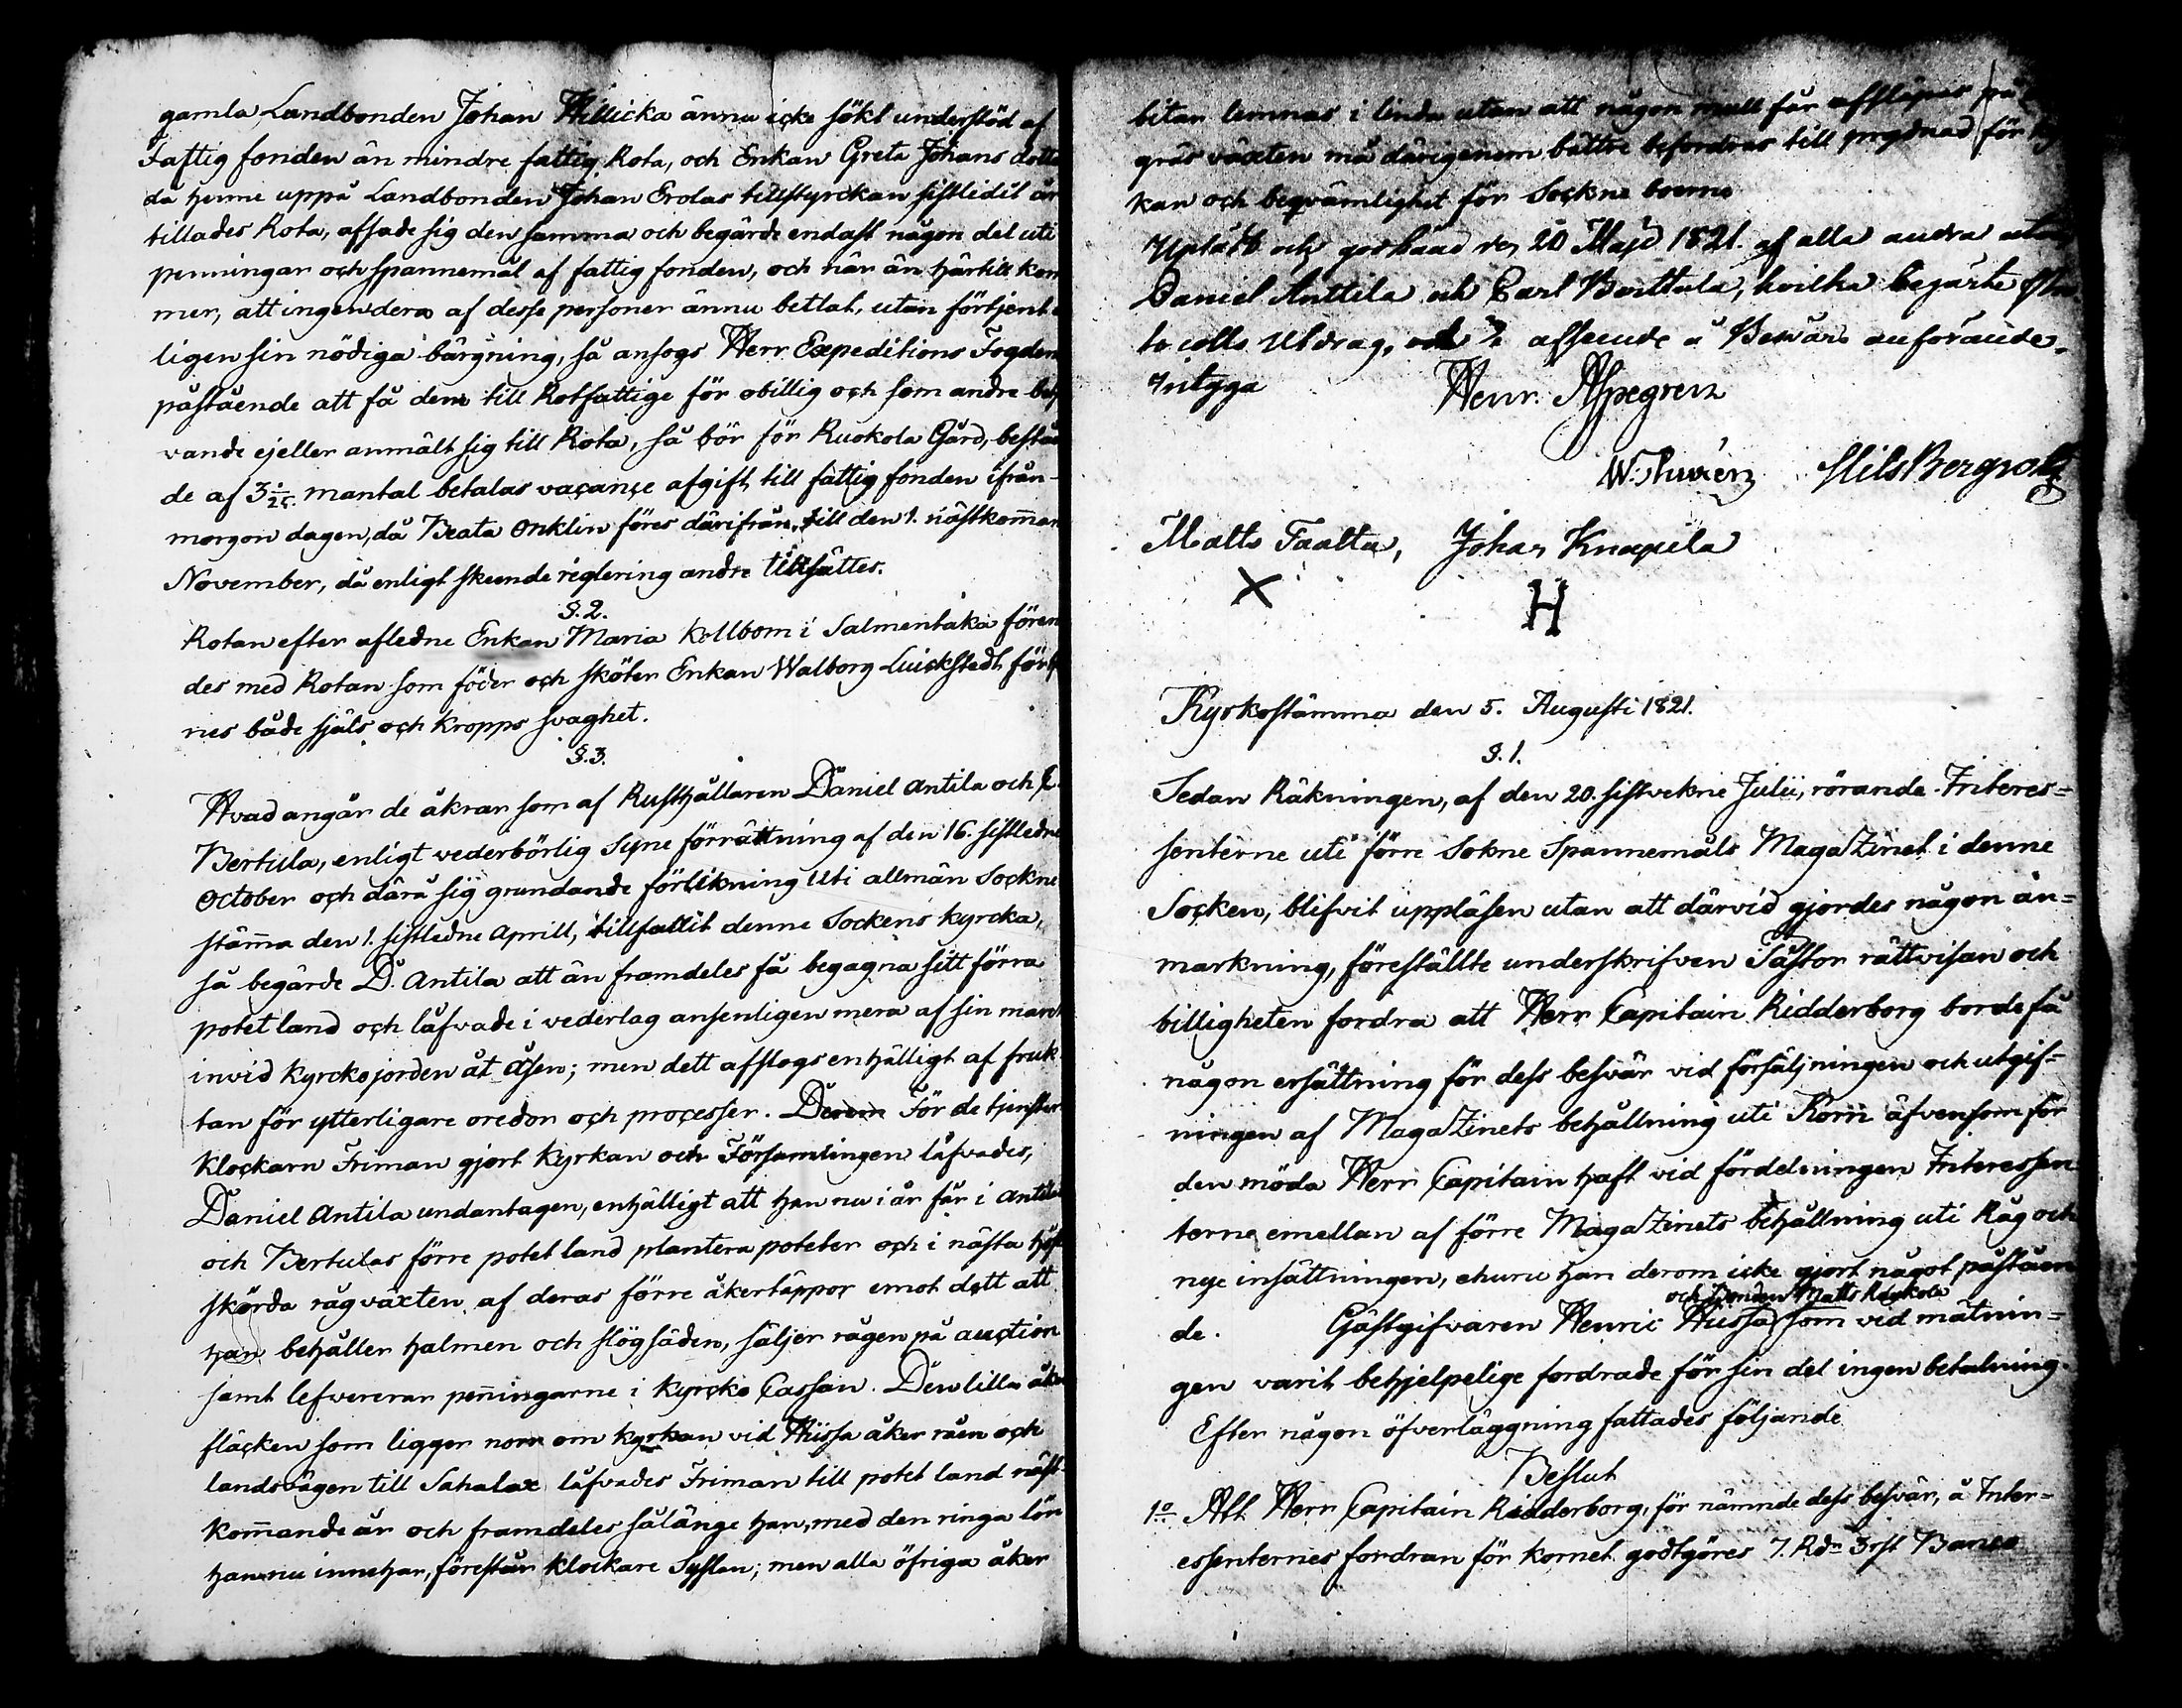 gamla Landbonden Johan Hillicka ännu icke sökt understöd af
Fattig fonden än mindre fattig Rota, och Enkan Greta Johans dotte
då henne uppå Landbonden Johan Erolas tillstyrckan sistlidit år
tillades Rota, afsade sig den samma och begärde endast någon del uti
penningar och spannemål af fattig fonden, och när än härtill kom
mer, att ingendera af desse personer ännu betlat, utan förtjent
ligen sin nödiga bärgning, så ansogs Herr Expeditions Fogden
påstående att få dem till Rotfattige för obillig och som andre beh
vande ejeller anmält sig till Rota, så bör för Ruokola Gård, beståen
de af 3 mantal betalas vacance afgift till fattig fonden ifrån
morgon dagen, då Beata Onklin föres därifrån, till den 1. nästkom̄an
November, då enligt skeende reglering andre tillsättes.
§. 2.
Rotan efter afledne Enkan Maria Kollbom i Salmentaka fören
des med Rotan som föder och sköter Enkan Walborg Luickstedt för
nes både själs och kropps svaghet.
§. 3.
Hvad angår de åkrar som af Rusthållaren Daniel Antila och C.
Bertula, enligt vederbörlig Syne förrättning af den 16. sistledne
October och därå sig grundande förlikning Uti allmän Sockne
stäm̄a den 1. sistledne Aprill, tillfallit denne Sockens kyrcka,
så begärde D. Antila att än framdeles få begagna sitt förra
potet land och låfvade i vederlag ansenligen mera af sin mark
invid Kyrckojorden åt åsen; men dett afslogs enhälligt af fruk
tan för ytterligare oredor och processer. För de tjenster
Klockarn Friman gjort Kyrkan och Församlingen låfvades,
Daniel Antila undantagen, enhälligt att han nu i år får i Antilas
och Bertulas förre potet land plantera poteter och i nästa höst
skörda rågväxten af deras förre åkertäppor emot dett att
han behåller halmen och slögsäden, säljer rågen på auction
samt lefvererar pen̄ingarne i Kyrcko Cassan. Den lilla åker
fläcken som ligger norr om kyrkan vid Hissa åker råen och
landsvägen till Sahalax låfvades Friman till potet land näst
kom̄ande år och framdeles sålänge han, med den ringa lön
han nu innehar, förestår Klockare Syslan; men alla öfriga åker
bitar lemnas i linda utan att någon mull får afsläpas på
gräsväxten må därigenom bättre befordras till prydnad för ky
kan och beqvämlighet för Sockne boerne
Upläst och godkänd den 20 Maji 1821. af alla andra utom
Daniel Anttila och Carl Berttula, hvilka begärte
to colls Utdrag, och i afseende å Besvärs anförande.
Intyga
Henr. Aspegren
W. Thurén Nils Bergroth
Matts Taalta, Johan Knapila
X H
Kyrkostämma den 5. Augusti 1821.
§. 1.
Sedan Räkningen, af den 20. sistvekne Julii, rörande Interes=
senterne uti förre Sokne Spannemåls MagaZinet i denne
Socken, blifvit uppläsen utan att därvid gjordes någon än=
markning, föreställte underskrifven Pastor rättvisan och
billigheten fordra att Herr Capitain Ridderborg borde få
någon ersättning för dess besvär vid försäljningen och utgif=
ningen af MagaZinets behållning uti Korn äfvensom för
den möda Herr Capitain haft vid fördelningen Interessen
terne emellan af förre MagaZinets behållning uti Råg och
nye insättningen, ehuru han derom icke gjort något påståen
och Bonden Matts Raukola
de. Gästgifvaren Henric Hissa som vid mätnin=
gen varit behjelpelige fordrade för sin del ingen betalning.
Efter någon öfverläggning fattades följande
Beslut
1o Att Herr Capitain Ridderborg, för nämnde dess besvär, å Inter=
essenternes fordran för kornet godtgöres 7. Rdr 3 rst Banco